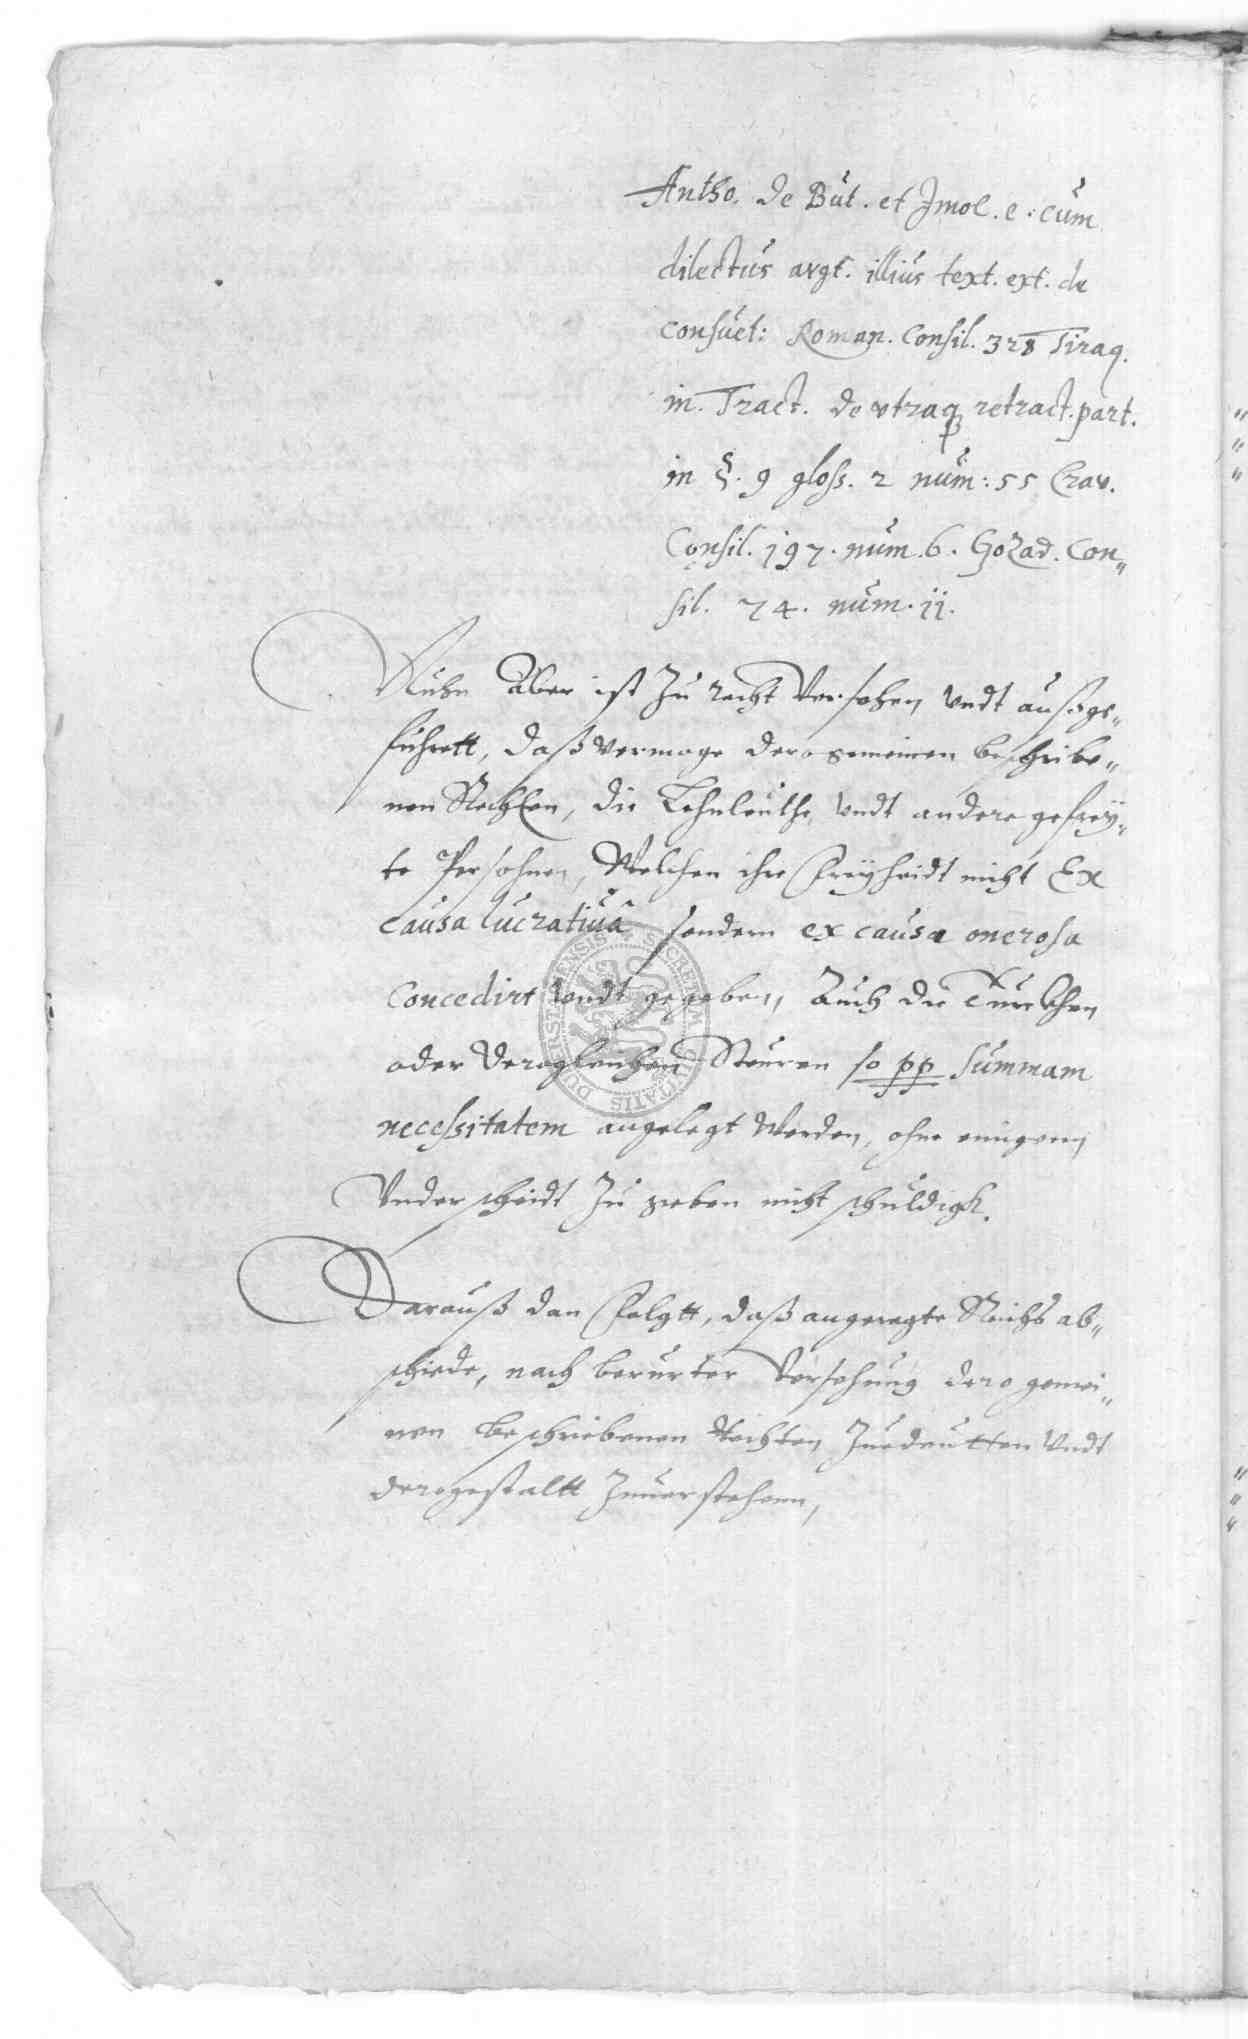 Antho. de But. et Jmol. e. cum
dilectus argt. illius text. ext. de
consuet: Roman. Consil. 328 Tiraq.
in. Tract. de vtraq retract. part.
in §. 9 gloss. 2 num: 55 Crav.
Consil. 197. num. 6. Gozad. Con„
sil. 74. num. 11.
Nuhn Aber ist zu recht Versehen, vndt außge„
fuhrett, daß vermoge dero gemeinen beschribe„
nen Rechten, die Lehnleuthe, vndt andere gefrey„
te Persohnen, Welchen ihre Freyheidt nicht Ex
causa lucratiuâ sondern ex causa onerosa
Concedirt vndt gegeben, Auch die Turcken
oder dergleichen Steuren so pp summam
necessitatem angelegt Werden, ohne einigenn
Vnderscheidt zu geben nicht schuldigk.
Darauß dan Folgtt, daß angeregte Reichs ab„
schiede, nach berurter Versehung dero gemei„
nen beschriebenen Rechten Zuedeutten vndt
derogestaltt Zuuerstehenn,
SECRETUM CIVITATIS